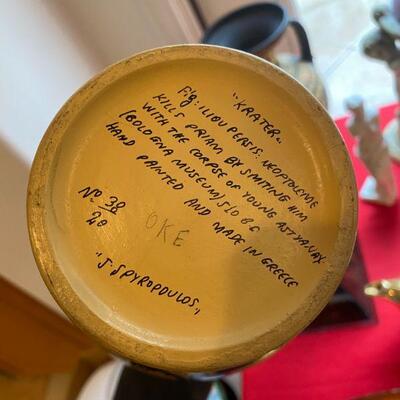 "KRATER"
Fig: ILIOUPERSIS: NEOPTOLEME
KILLS PRIAM BY SMITING HIM
WITH THE CORPSE OF YOUNG ASTYANAX
(BOLOGNA MUSEUM) 510 B C
HAND PAINTED AND MADE IN GREECE
No 38/20
OKE
"J. SPYROPOULOS"